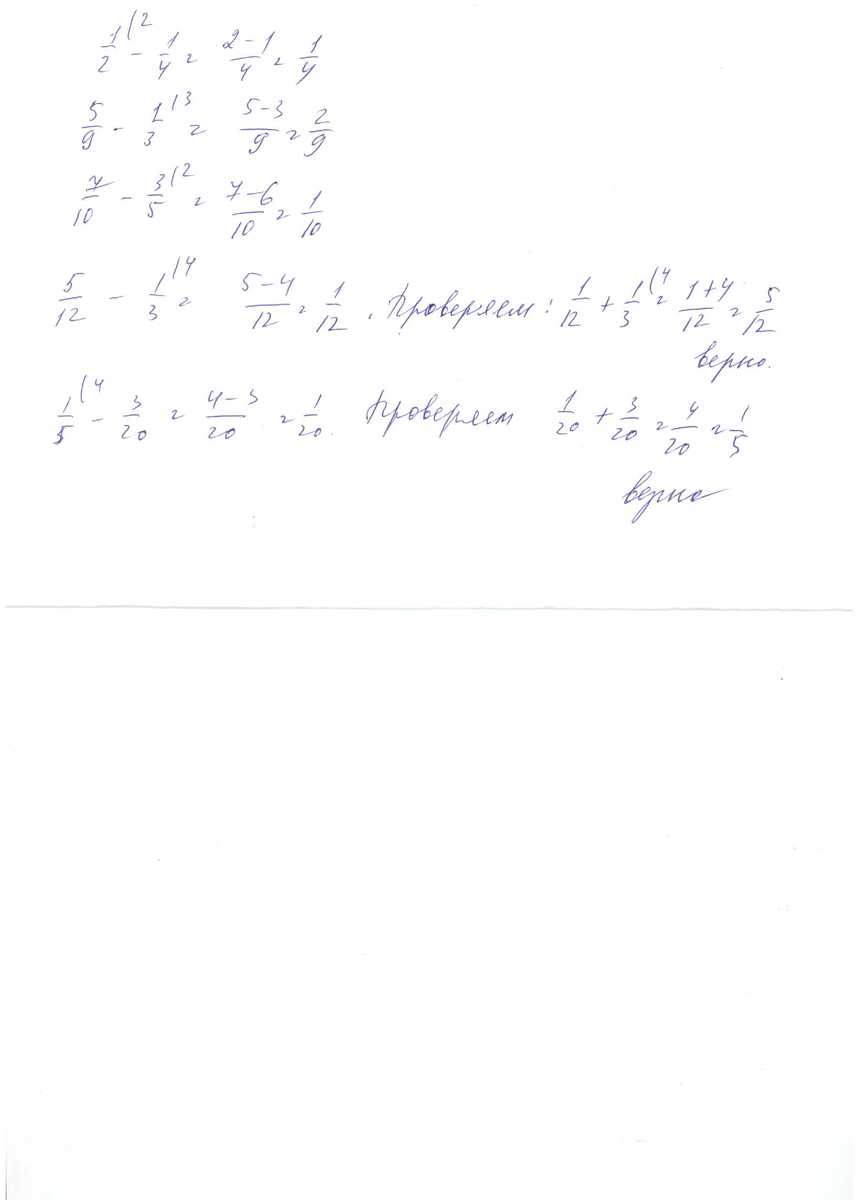 1/2 (2 - 1/4 = 2-1/4 = 1/4
5/9 - 1/3 (3 = 5-3/9 = 2/9
7/10 - 3/5 (2 = 7-6/10 = 1/10
5/12 - 1/3 (4 = 5-4/12 = 1/12. Проверяем: 1/12 + 1/3 (4 = 1+4/12 = 5/12
верно.
1/5 (4 - 3/20 = 4-3/20 = 1/20. Проверяем 1/20 + 3/20 = 4/20 = 1/5
верно